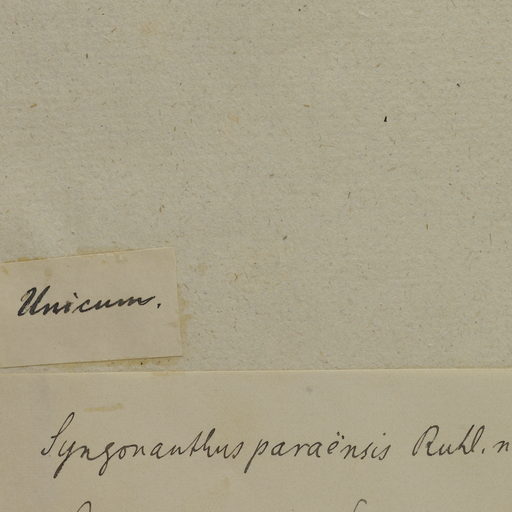 Unicum.
Syngonanthus paraënsis Ruhl. n